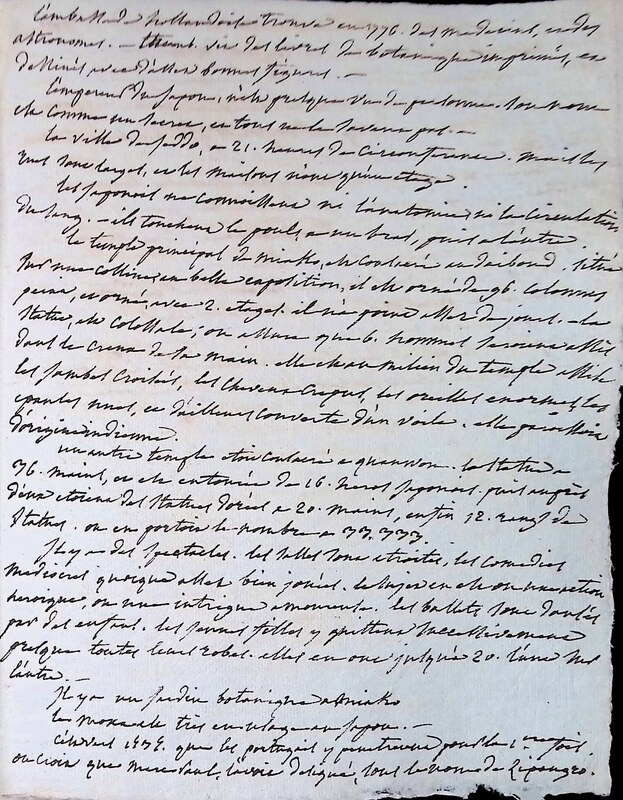 L'ambassade hollandaise trouva en 1776. des medecins, en des
astronomes. — Thunb. vit des livres de botanique imprimés, en
dessinés, avec d'assez bonnes figures. —
L'empereur du japon, n'est presque vu de personne. Son nom
est comme un secret, en tous ne le savent pas. —
La ville de jeddo, a 21. heures de circonference. mais les
rues sont larges, en les maisons n'ont qu'un etage.
Les japonois ne connoissent ni l'anatomie ni la circulation
du sang. — ils touchent le pouls, a un bras, puis a l'autre.
Le temple principal de miako, est consacré au daiboud. situé
sur une colline, en belle exposition, il est orné de 96. colonnes
peint, en orné, avec 2. etages. il n'a point assez de jours. — la
statue, est colossale; on assure que 6. hommes seroient assis
dans le creux de sa main. elle est au milieu du temple assise
les jambes croisées, les cheveux crepus, les oreilles enormes, les
epaules nues, en d'ailleurs couverte d'un voile. elle paroitroit
d'origine indienne.
un autre temple etoit consacré a quanwon. la statue a
36. mains, en est entourée de 16. heros japonois. puis auprès
d'eux etoient des statues dorées a 20. mains, enfin 12. rangs de
statues. on en portoit le nombre a 33,333.
Il y a des spectacles. les salles sont etroites, les comedies
mediocres quoique assez bien jouées. le sujet en est ou une action
heroique, ou une intrigue amoureuse. les ballets sont dansés
par des enfans. les jeunes filles y quittent successivement
presque toutes leurs robes. elles en ont jusqu'à 20. l'une sur
l'autre. —
Il y a un jardin botanique a miako
le moxa est très en usage au japon. —
C'est vers 1535. que les portugais y penetrerent pour la 1ere fois.
on croit que marc paul, l'avoit designé, sous le nom de Zipangro.